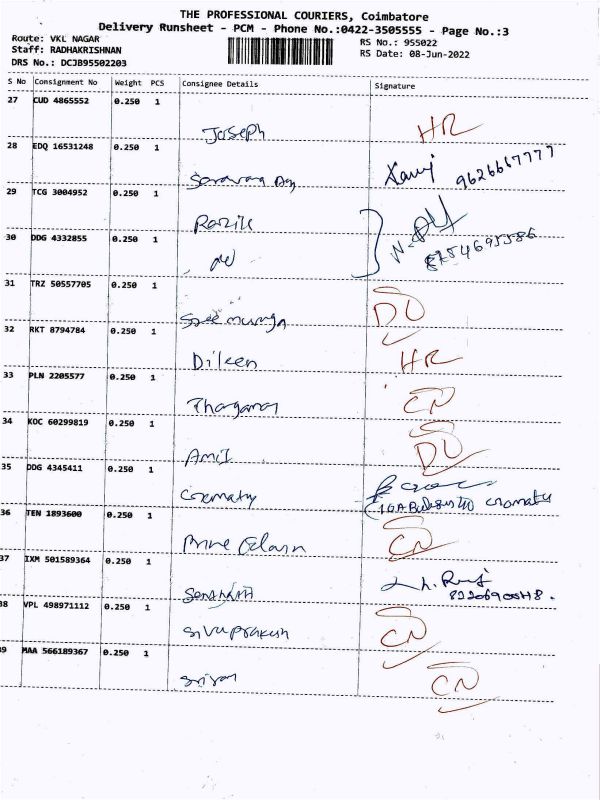 THE PROFESSIONAL COURIERS, Coimbatore
Delivery Runsheet - PCM - Phone No.:0422-3505555 - Page No.:3
Route: VKL NAGAR
RS No.: 955022
Staff: RADHAKRISHNAN
RS Date: 08-Jun-2022
DRS No.: DCJB95502203
S No Consignment No Weight PCS Consignee Details Signature
27 CUD 4865552 0.250 1
Joseph HR
28 EDQ 16531248 0.250 1
9626667777
29 TCG 3004952 0.250 1
Razik
30 DDG 4332855 0.250 1
31 TRZ 50557705 0.250 1
Sree muruga DU
32 RKT 8794784 0.250 1
Dileen HR
33 PLN 2205577 0.250 1
CN
34 KOC 60299819 0.250 1
Amit DU
35 DDG 4345411 0.250 1
36 TEN 1893600 0.250 1
CN
37 IXM 501589364 0.250 1
38 VPL 498971112 0.250 1
Sivaprakash CN
39 MAA 566189367 0.250 1
CN